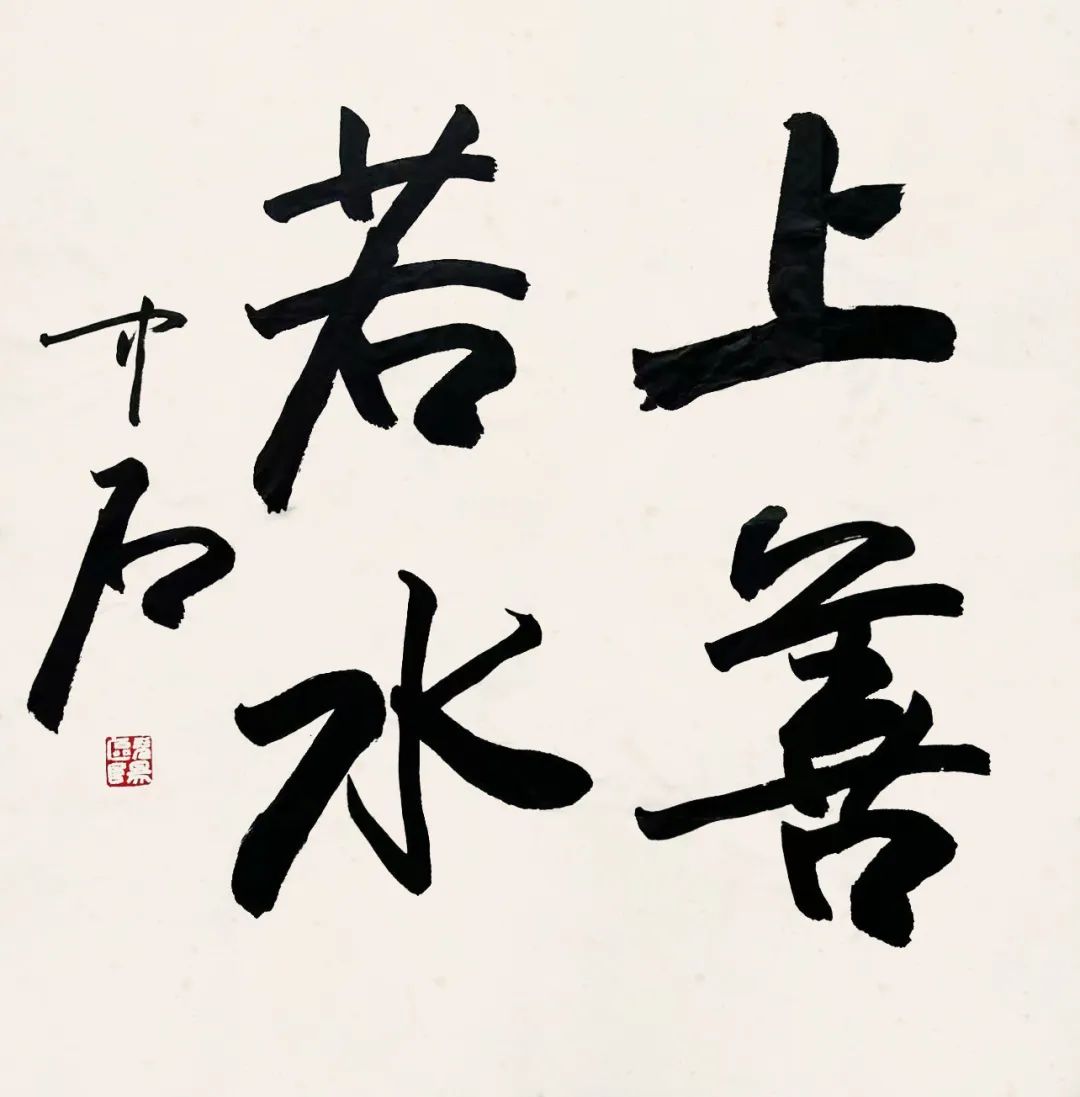 上善
若水
中石